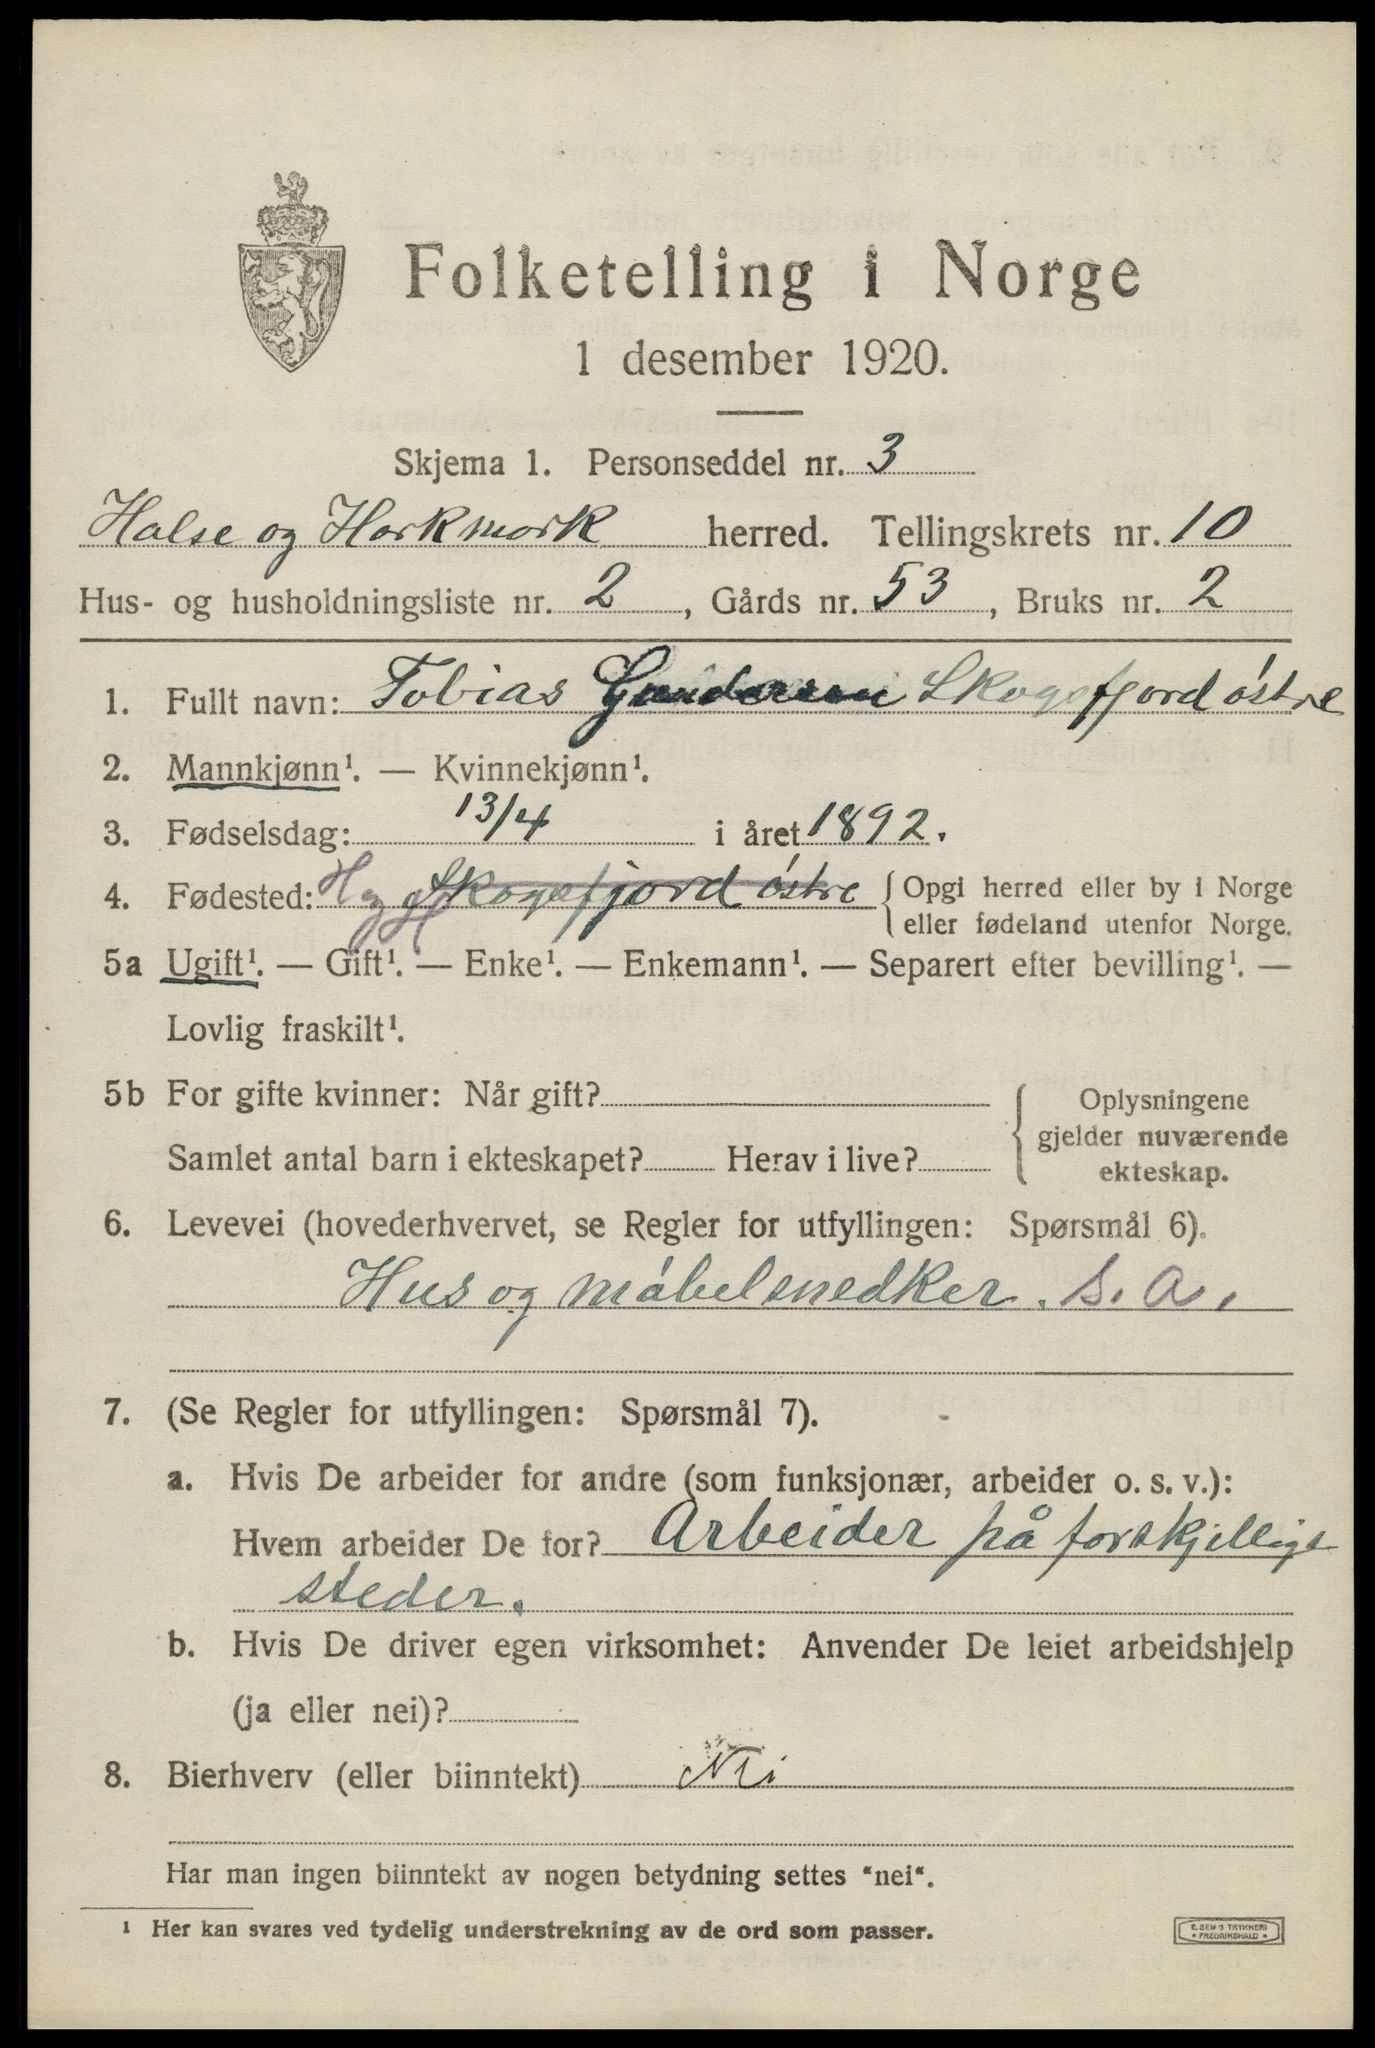 Folketelling i Norge
1 desember 1920.
Skjema 1. Personseddel nr. 3
Halse og Harkmark herred. Tellingskrets nr. 10
Hus- og husholdningsliste nr. 2, Gårds nr. 53, Bruks nr. 2
1. Fullt navn: Tobias Gundersen Skogsfjord østre
2. Mannkjønn¹. — Kvinnekjønn¹.
3. Fødselsdag: 13/4 i året 1892.
4. Fødested: H og H Skogsfjord østre { Opgi herred eller by i Norge
eller fødeland utenfor Norge.
5a Ugift¹. — Gift¹. — Enke¹. — Enkemann¹. — Separert efter bevilling¹. —
Lovlig fraskilt¹.
5b For gifte kvinner: Når gift?
Samlet antal barn i ekteskapet? Herav i live?
Oplysningene
gjelder nuværende
ekteskap.
6. Levevei (hovederhvervet, se Regler for utfyllingen: Spørsmål 6).
Hus og møbelsnedker. s. a.
7. (Se Regler for utfyllingen: Spørsmål 7).
a. Hvis De arbeider for andre (som funksjonær, arbeider o. s. v.):
Hvem arbeider De for? Arbeider på forskjellige
steder.
b. Hvis De driver egen virksomhet: Anvender De leiet arbeidshjelp
(ja eller nei)?
8. Bierhverv (eller biinntekt) Nei
Har man ingen biinntekt av nogen betydning settes "nei".
¹ Her kan svares ved tydelig understrekning av de ord som passer.
E. SEM'S TRYKKERI
FREDRIKSHALD